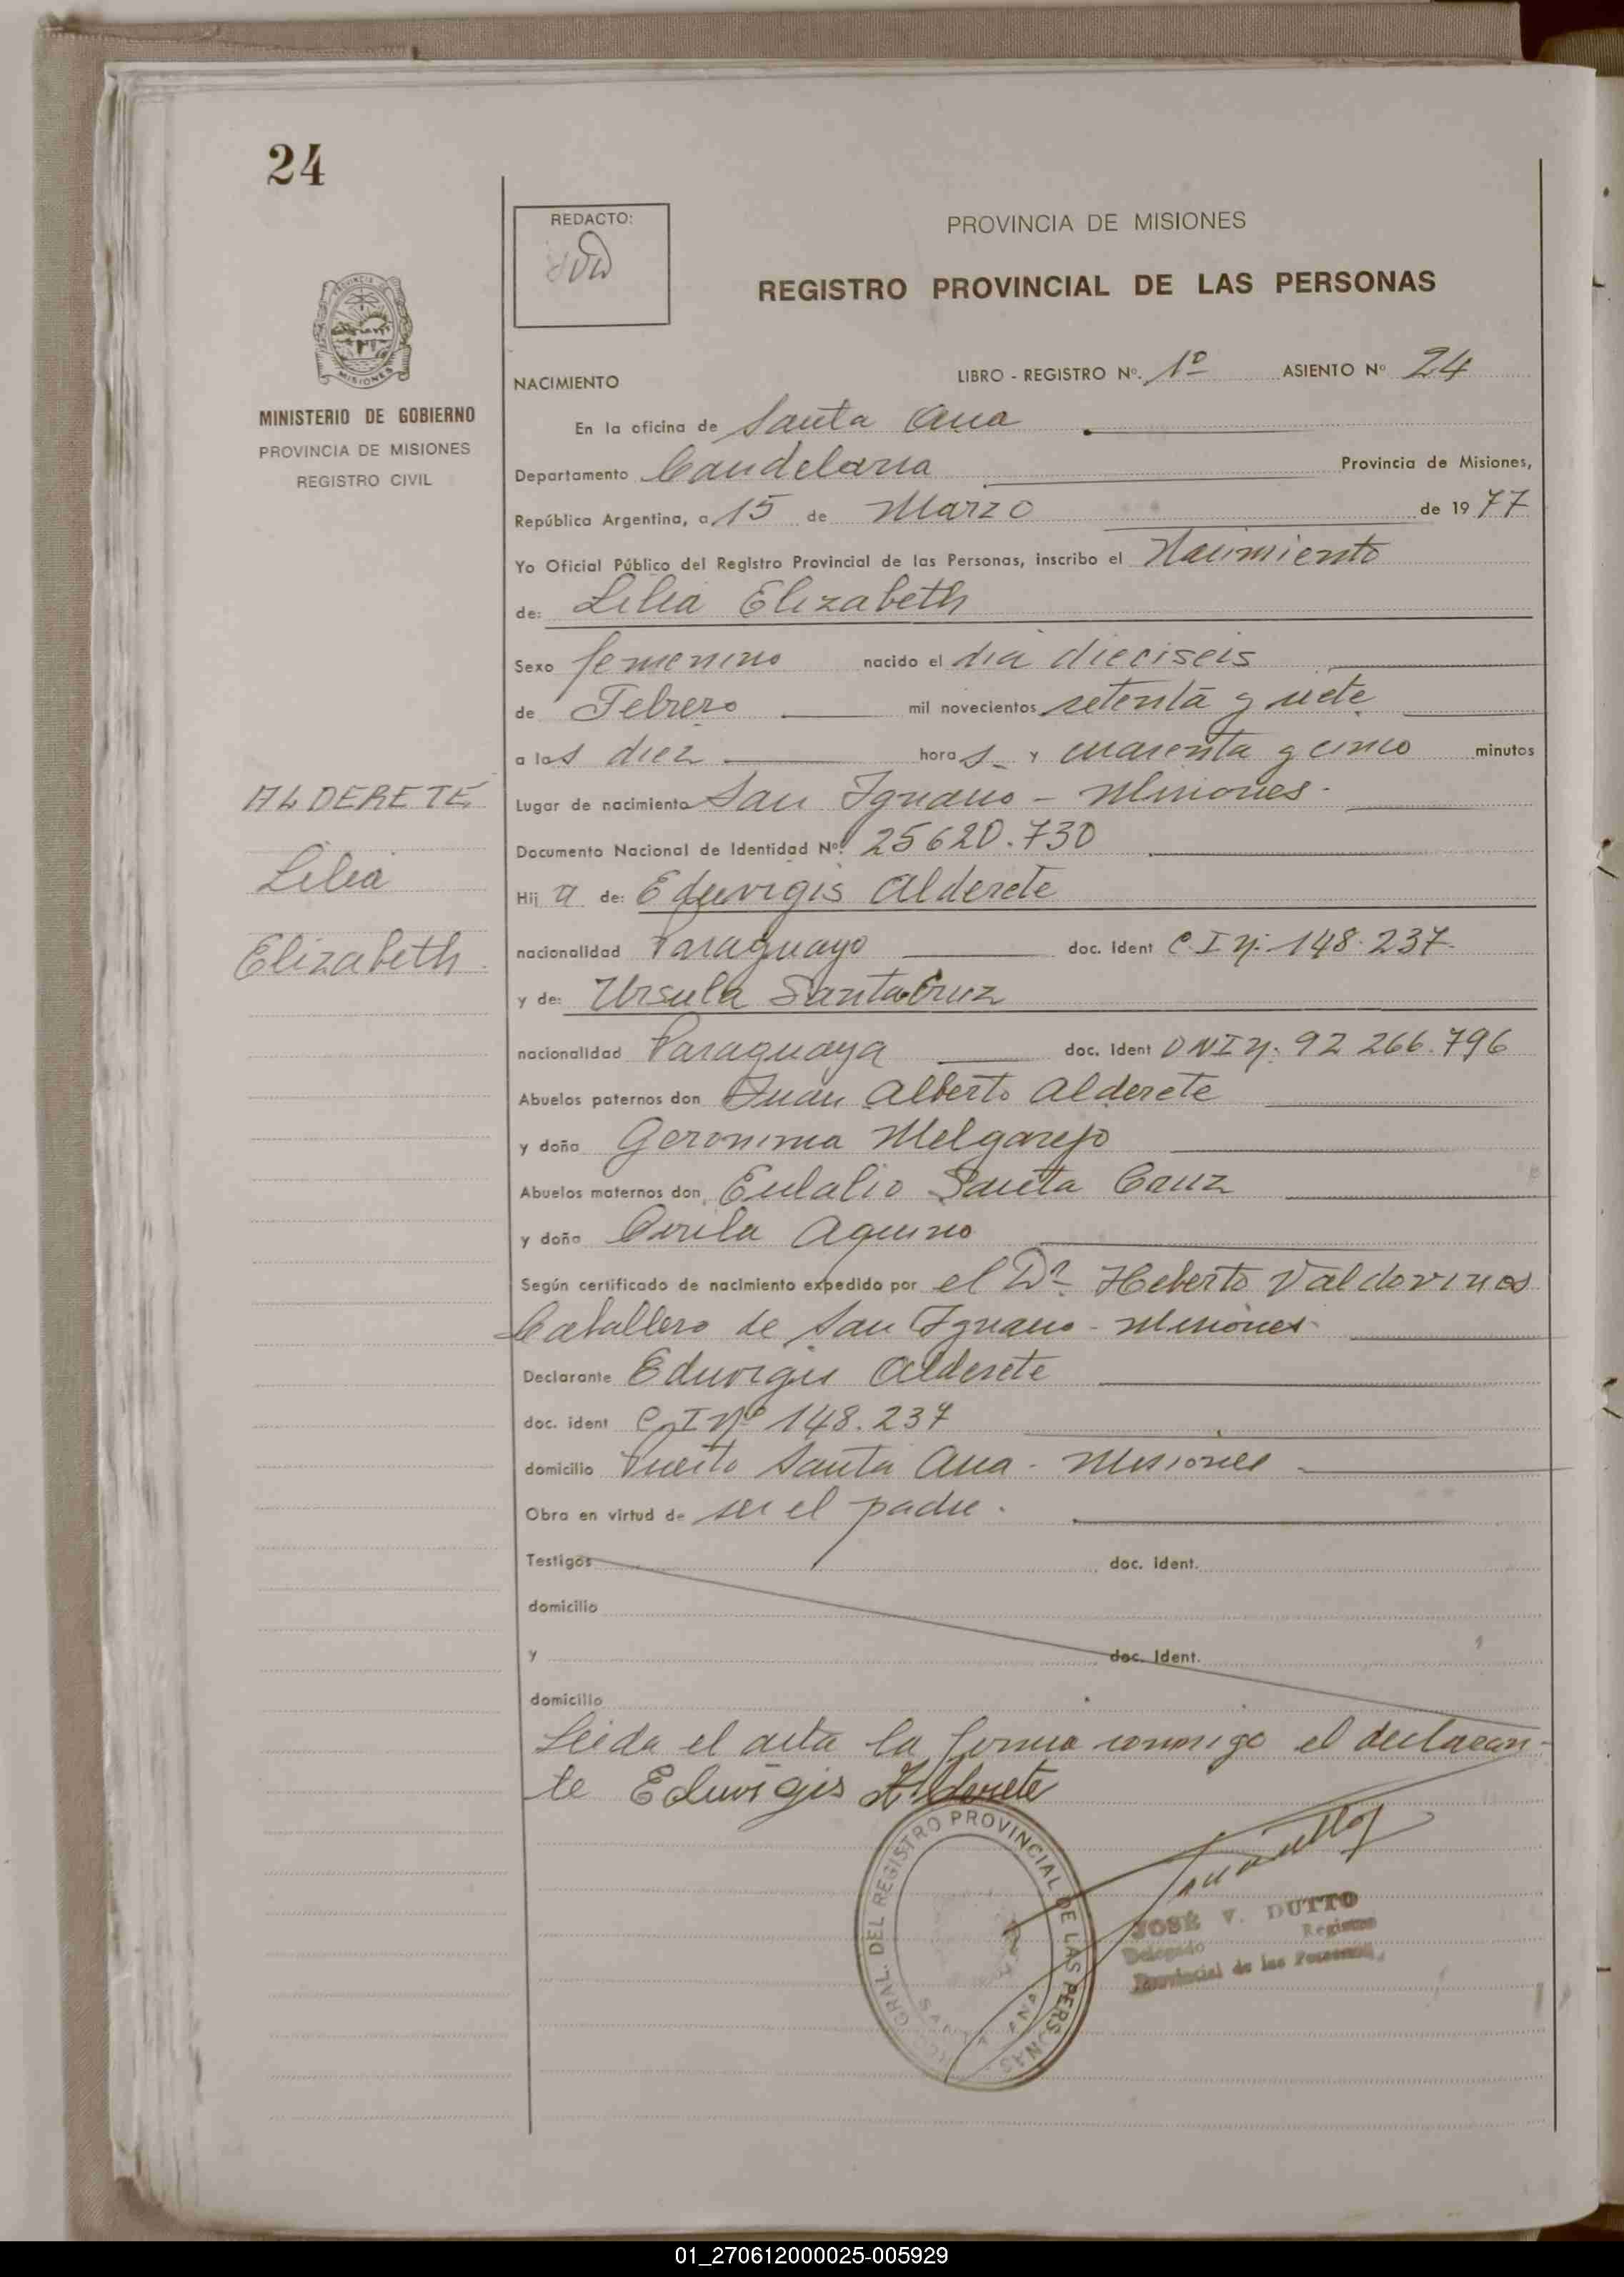 24
REDACTO:
PROVINCIA DE MISIONES
REGISTRO PROVINCIAL DE LAS PERSONAS
PROVINCIA DE
MISIONES
MINISTERIO DE GOBIERNO
PROVINCIA DE MISIONES
REGISTRO CIVIL
NACIMIENTO LIBRO - REGISTRO Nº. 1º ASIENTO Nº 24
En la oficina de Santa Ana
Departamento Candelaria Provincia de Misiones,
República Argentina, a 15 de Marzo de 1977
Yo Oficial Público del Registro Provincial de las Personas, inscribo el Nacimiento
de: Lilia Elizabeth
Sexo femenino nacido el dia dieciseis
de Febrero mil novecientos setenta y siete
a las diez horas y cuarenta y cinco minutos
ALDERETE
Lilia
Elizabeth
Lugar de nacimiento San Ignacio - Misiones -
Documento Nacional de Identidad Nº. 25620.730
Hija de: Eduvigis Alderete
nacionalidad Paraguayo doc. Ident C.I nº. 148.237.
y de: Ursula Santa Cruz
nacionalidad Paraguaya doc. Ident DNI nº. 92 266.796
Abuelos paternos don Juan Alberto Alderete
y doña Geronima Melgarejo
Abuelos maternos don Eulalio Santa Cruz
y doña Cirila Aquino
Según certificado de nacimiento expedido por el Dr. Heberto Valdovinos
Caballero de San Ignacio - Misiones
Declarante Eduvigis Alderete
doc. ident C.I nº 148.237
domicilio Puerto Santa Ana - Misiones
Obra en virtud de ser el padre.
Testigos doc. ident.
domicilio
y doc. Ident.
domicilio
Leida el acta la firma conmigo el declaran-
te Eduvigis Alderete
GRAL. DEL REGISTRO PROVINCIAL DE LAS PERSONAS
SANTA ANA
JOSÉ V. DUTTO
Delegado Registro
Provincial de las Personas
01_270612000025-005929